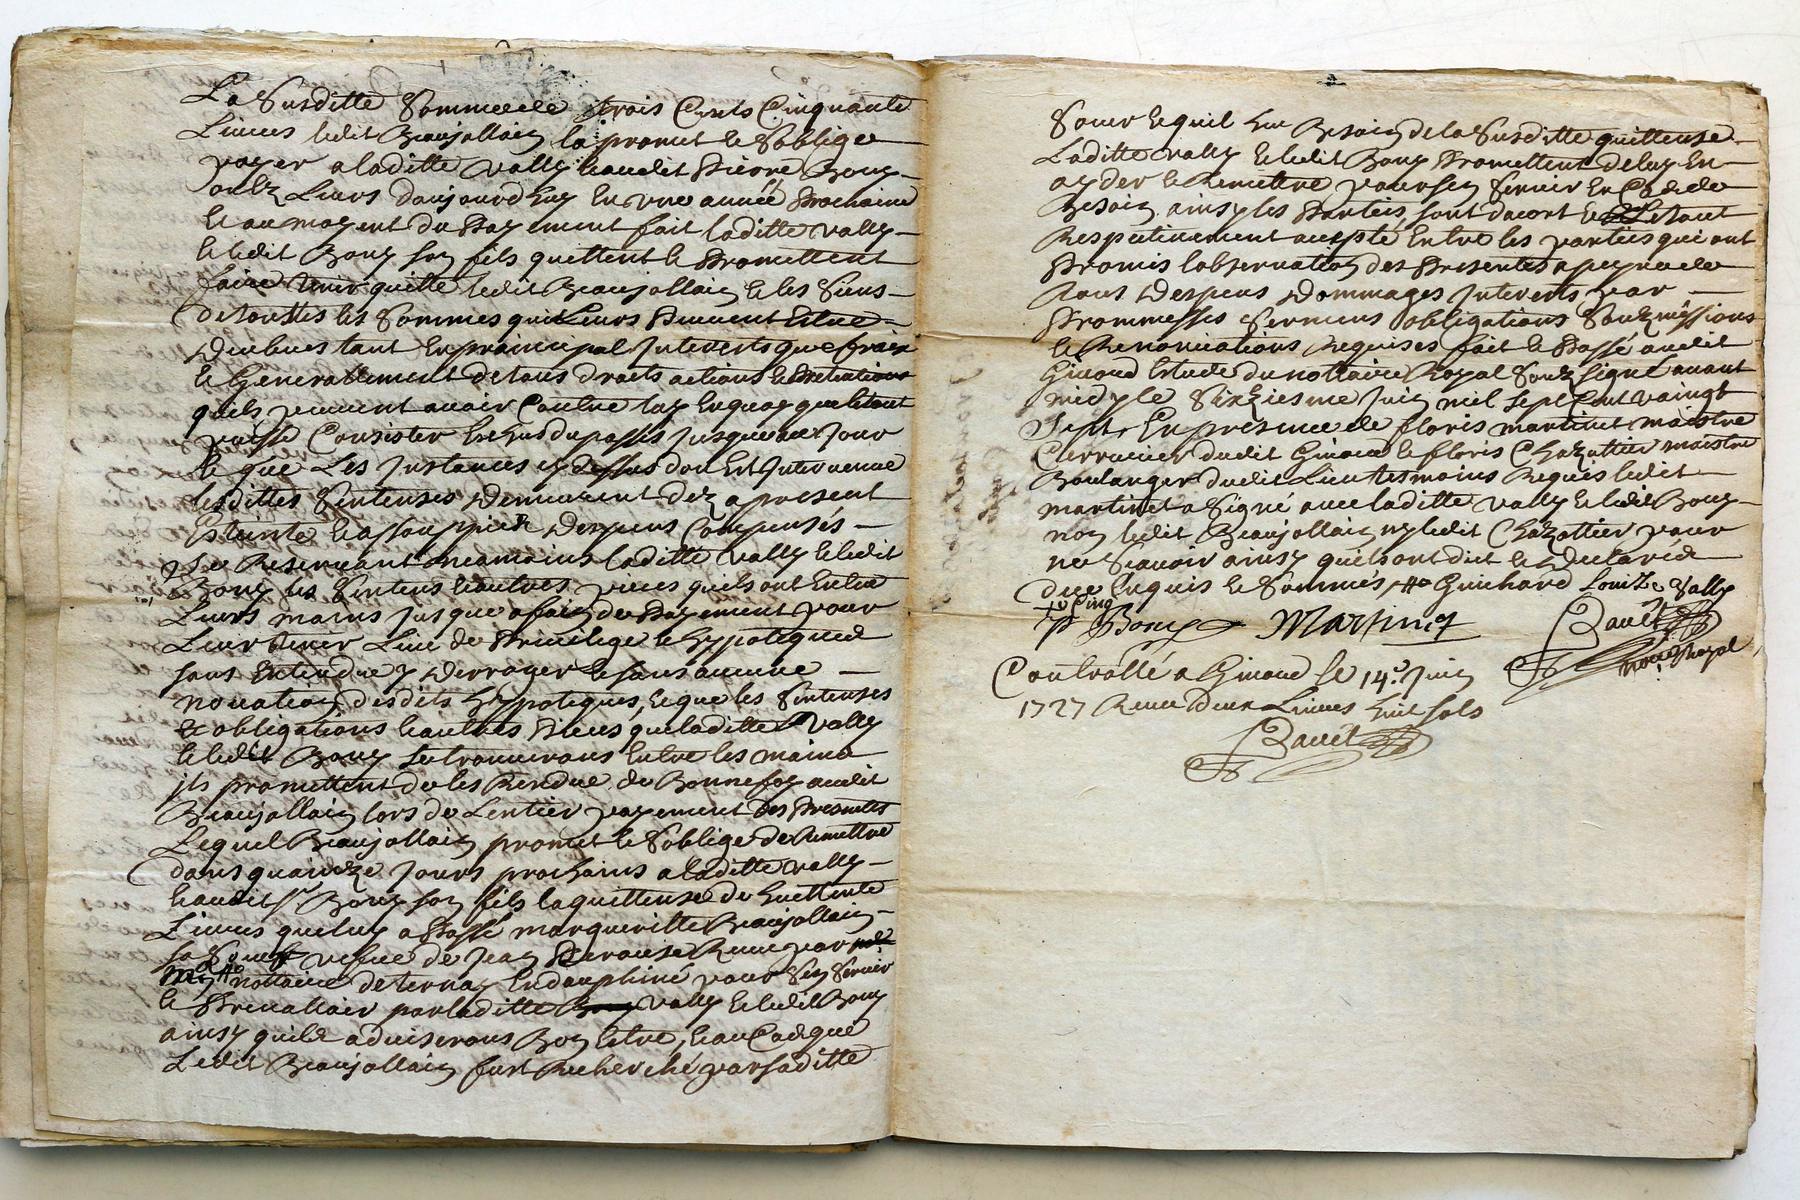 La Susditte Somme de trois Cents Cinquante
Liures ledit Beaujollain la promet le Soblige
payer a laditte Vally Eaudit Pierre Bouy
Liurs daujourdhuy En vne année Prochaine
Et au moyent du Payement fait laditte vally
Eledit Bouy son fils quittent le Promettent
faire tenir quitte ledit Beaujollain E les Siens
de touttes les Sommes quil Leurs Peuuent Estre
Deubues tant En principal Interests que fraix
Et Generallement de tous droits actions E Pretentions
quils peuuent auoir Contre luy En quoy que le tout
puisse Consister du passés Jusque au Jour
Et que Les Instances cy dessus dont Est Interuenue
lesdittes Sentenses Demeurent dez a present
Esteinte Eassouppies Despens Compensés
Se Reseruant neamoins laditte Vally Eledit
Bouy les Sentens Eautres pieces quils ont Entre
Leurs mains Jusque a fain de Payement pour
Leur tenir Lieu de Priuilege Et Hypoteques
sans Entendre y Derroger E sans aucune
nouation desdits Hypoteques, E que les Sentenses
& obligations Eautres Pieces que laditte Vally
Eledit Bouy Se trouuerons Entre les mains
jls promettent de les Rendre de Bonne foy audit
Beaujollain lors de Lentier payement des Presentes
Lequel Beaujollain promet le Soblige de Remettre
dans quainze Jours prochains a laditte Vally
Eaudit Sr Bouy son fils la quittense de Huettente
Liures que luy a Passé margueritte Beaujollain
sa Soeur vefue de Jean Perouse Reeue par
Me nottaire de ternay En dauphiné pour Sen Seruir
Et Preualloir par laditte Vally Eledit Bouy
ainsy quils aduiserons Bon Estre, Eau Cas que
Ledit Beaujollain fut Recherché par laditte
Soeur Lequil Eut Besoin de la Susditte quittense
Laditte vally Eledit Bouy Promettent de luy En
ayder Et Remettre pour sen Seruir En Cas de
Besoin ainsy les Parties sont dacort Et Le tout
Respectiuement accepté Entre les parties qui ont
Promis lobseruation des Presentes a peyne de
tous Despens Dommages Interests par
Prommesses Sermens obligations Soubzmissions
Et Renonciations Requises fait Et Passé audit
Giuord Estude du nottaire Royal Soubzsigné auant
midy le Sixziesme Juin mil Sept Cent vaingt
Sept, En presence de floris martinet maistre
Cerrurier dudit Giuord Et floris Chazottier maistre
Boulanger dudit Lieu tesmoins Requis ledit
martinet a Signé auec laditte Vally Eledit Bouy
non ledit Beaujollain ny ledit Chazottier pour
ne Scauoir ainsy quils ont dict Et Declaré
de ce Enquis Et Sommés Guichard Louize Vally
P Bouy Martinet Bauët
nore Royal
Controllé a Giuord le 14e Juin
1727 Receu deux Liures huit sols
Bauët